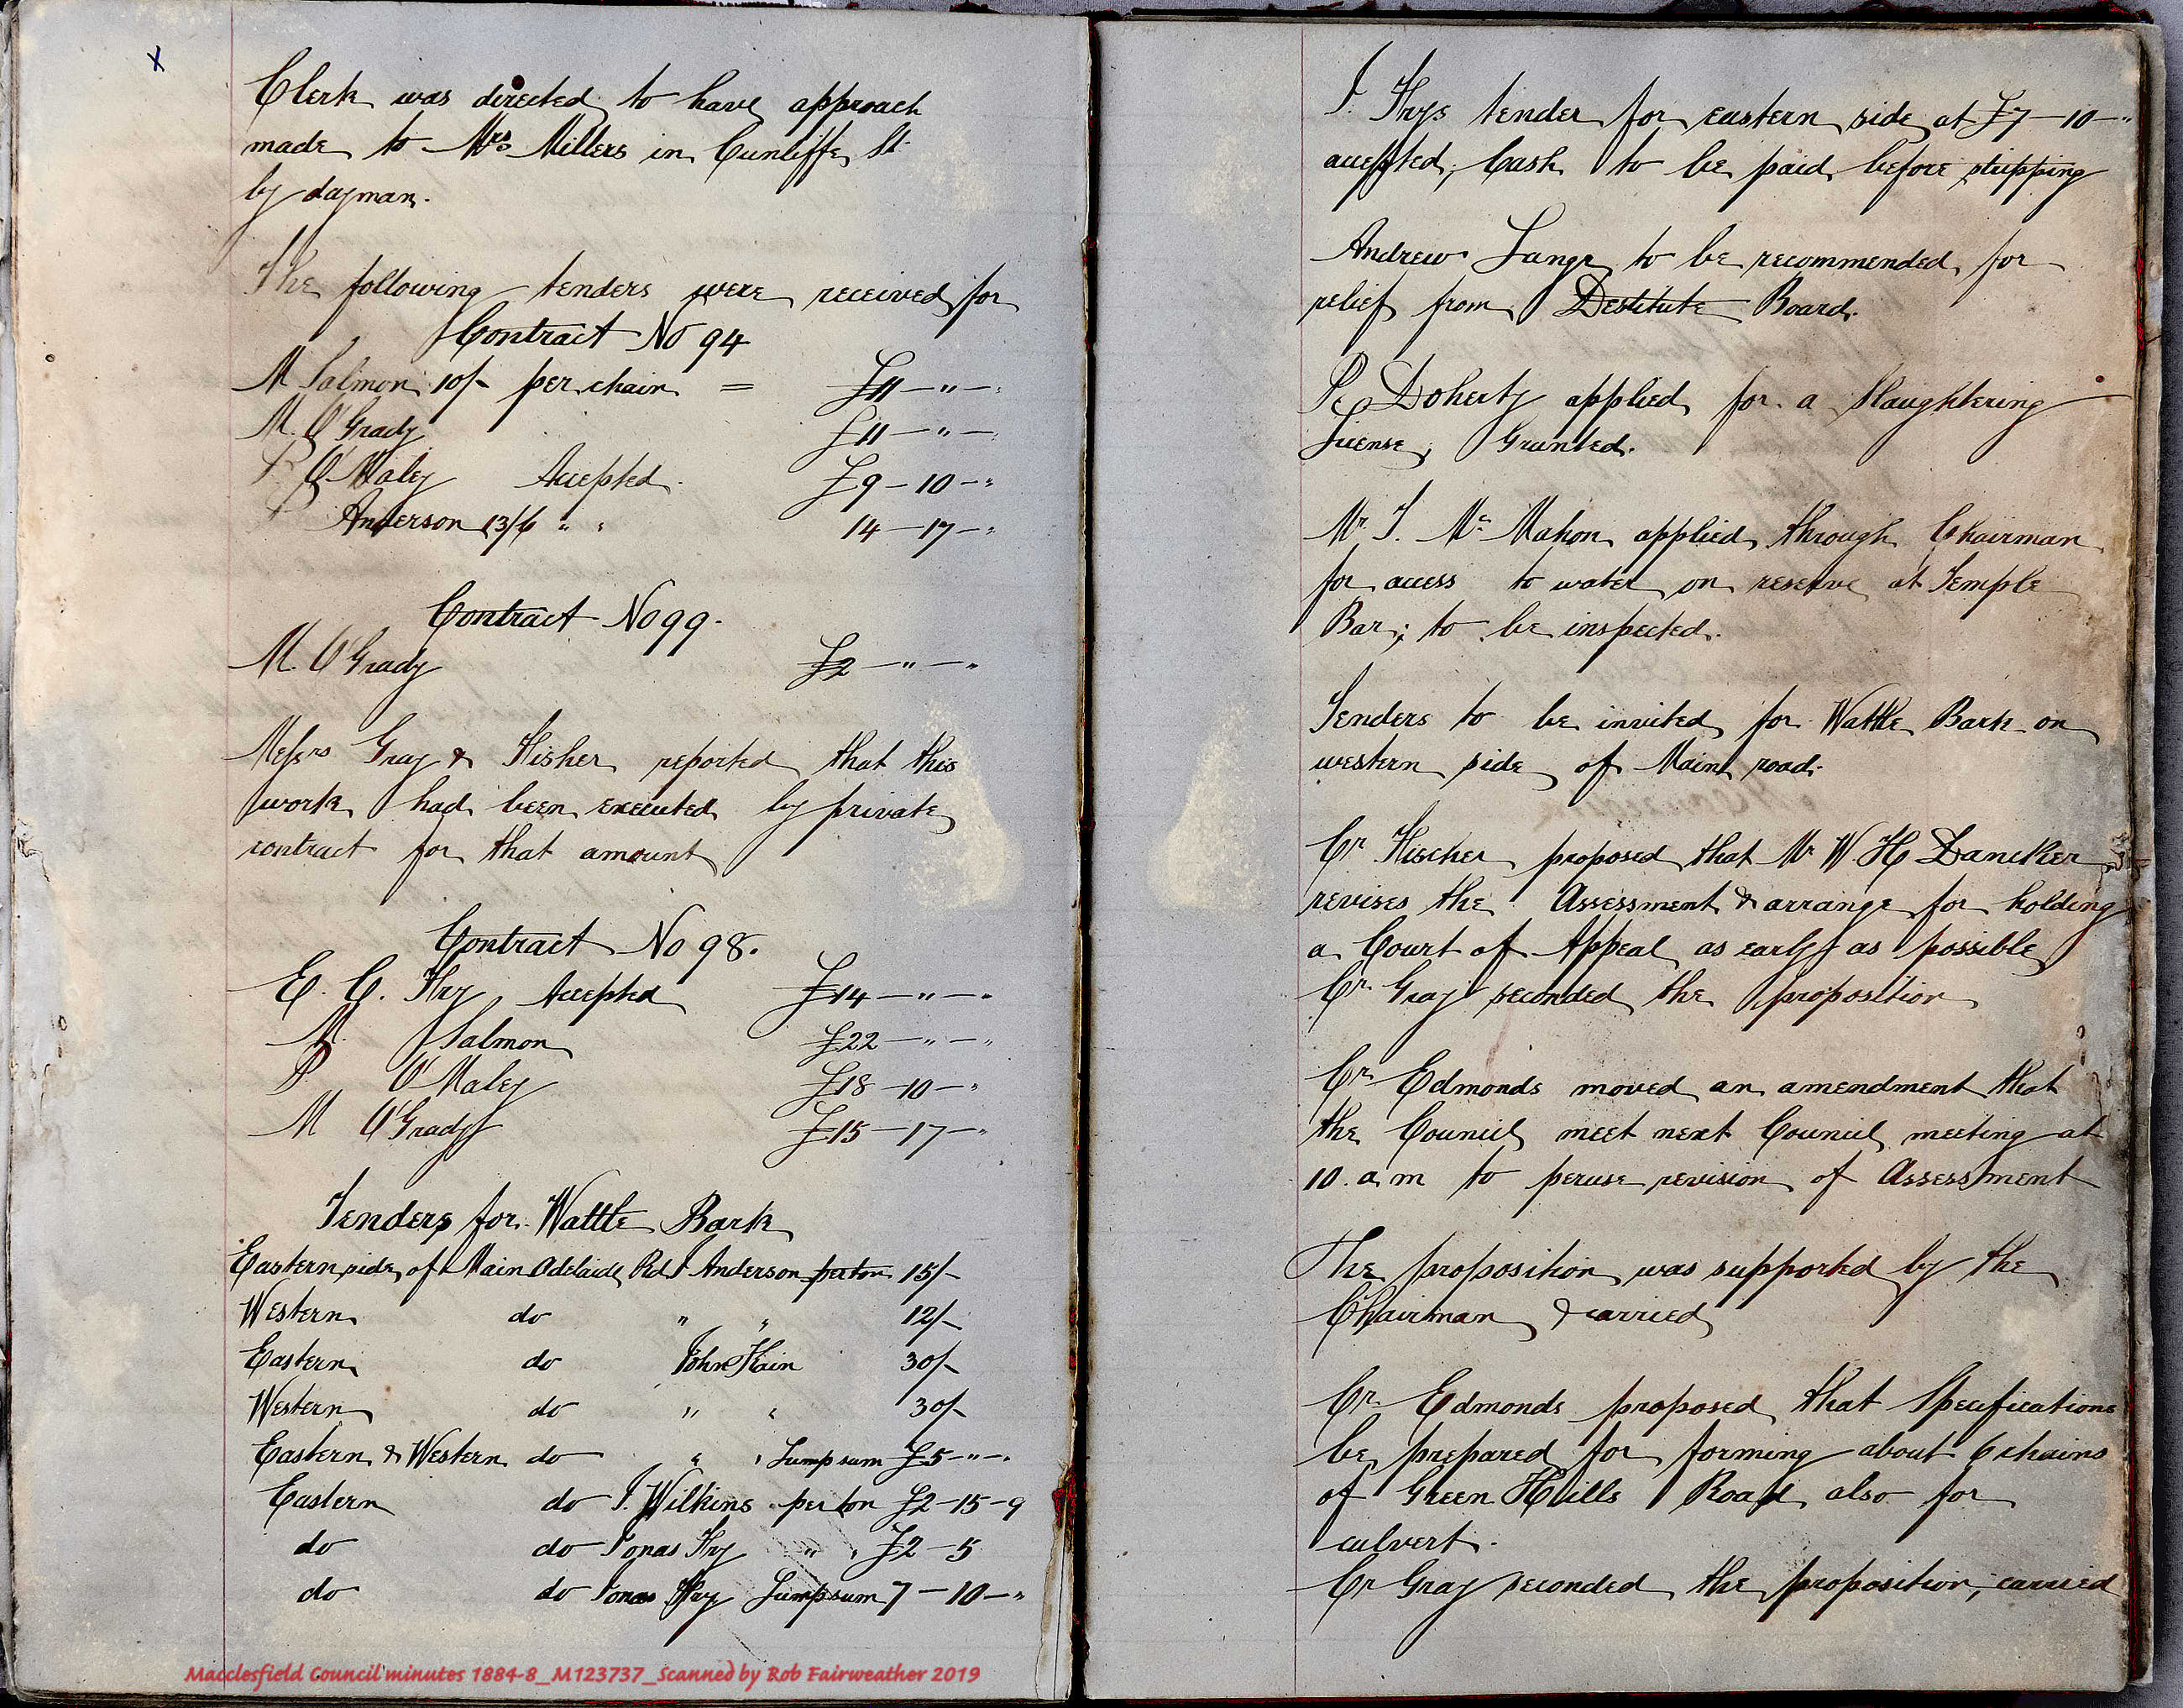 x
Clerk was directed to have approach
made to Mrs Millers in Cunliffe St.
by dayman.
The following tenders were received for
Contract No 94
M Salmon 10/- per chain = £11 — " — "
M. O'Grady £11 — " — "
P O'Maley Accepted. £9 — 10 — "
P Anderson 13/6 " " 14 — 17 — "
Contract No 99.
M. O'Grady £2 — " — "
Messrs Gray & Fisher reported that this
work had been executed by private
contract for that amount
Contract No 98.
E. C. Fry Accepted £14 — " — "
M. Salmon £22 — " — "
P O'Maley £18 — 10 — "
M O'Grady £15 — 17 — "
Tenders for Wattle Bark
Eastern side of Main Adelaide Rd J Anderson per ton 15/-
Western do " " 12/-
Eastern do John Hain 30/-
Western do " " 30/-
Eastern & Western do " " Lump sum £5 — " — "
Eastern do J. Wilkins per ton £2 — 15 — 9
do do Jonas Fry " " £2 — 5
do do Jonas Fry Lump sum 7 — 10 — "
Macclesfield Council minutes 1884-8_M123737_Scanned by Rob Fairweather 2019
J. Frys tender for eastern side at £7 — 10 — "
accepted; Cash to be paid before stripping
Andrew Lange to be recommended for
relief from Destitute Board.
P. Doherty applied for a Slaughtering
License, Granted.
Mr. T. Mc Mahon applied through Chairman
for access to water on reserve at Temple
Bar; to be inspected.
Tenders to be invited for Wattle Bark on
western side of Main road.
Cr Fischer proposed that Mr W H Dancker
revises the Assessment & arrange for holding
a Court of Appeal as early as possible
Cr. Gray seconded the proposition
Cr. Edmonds moved an amendment that
the Council meet next Council meeting at
10. a.m to peruse revision of Assessment
The proposition was supported by the
Chairman & carried
Cr. Edmonds proposed that Specifications
be prepared for forming about 6 chains
of Green Hills Road also for
culvert.
Cr Gray seconded the proposition; carried